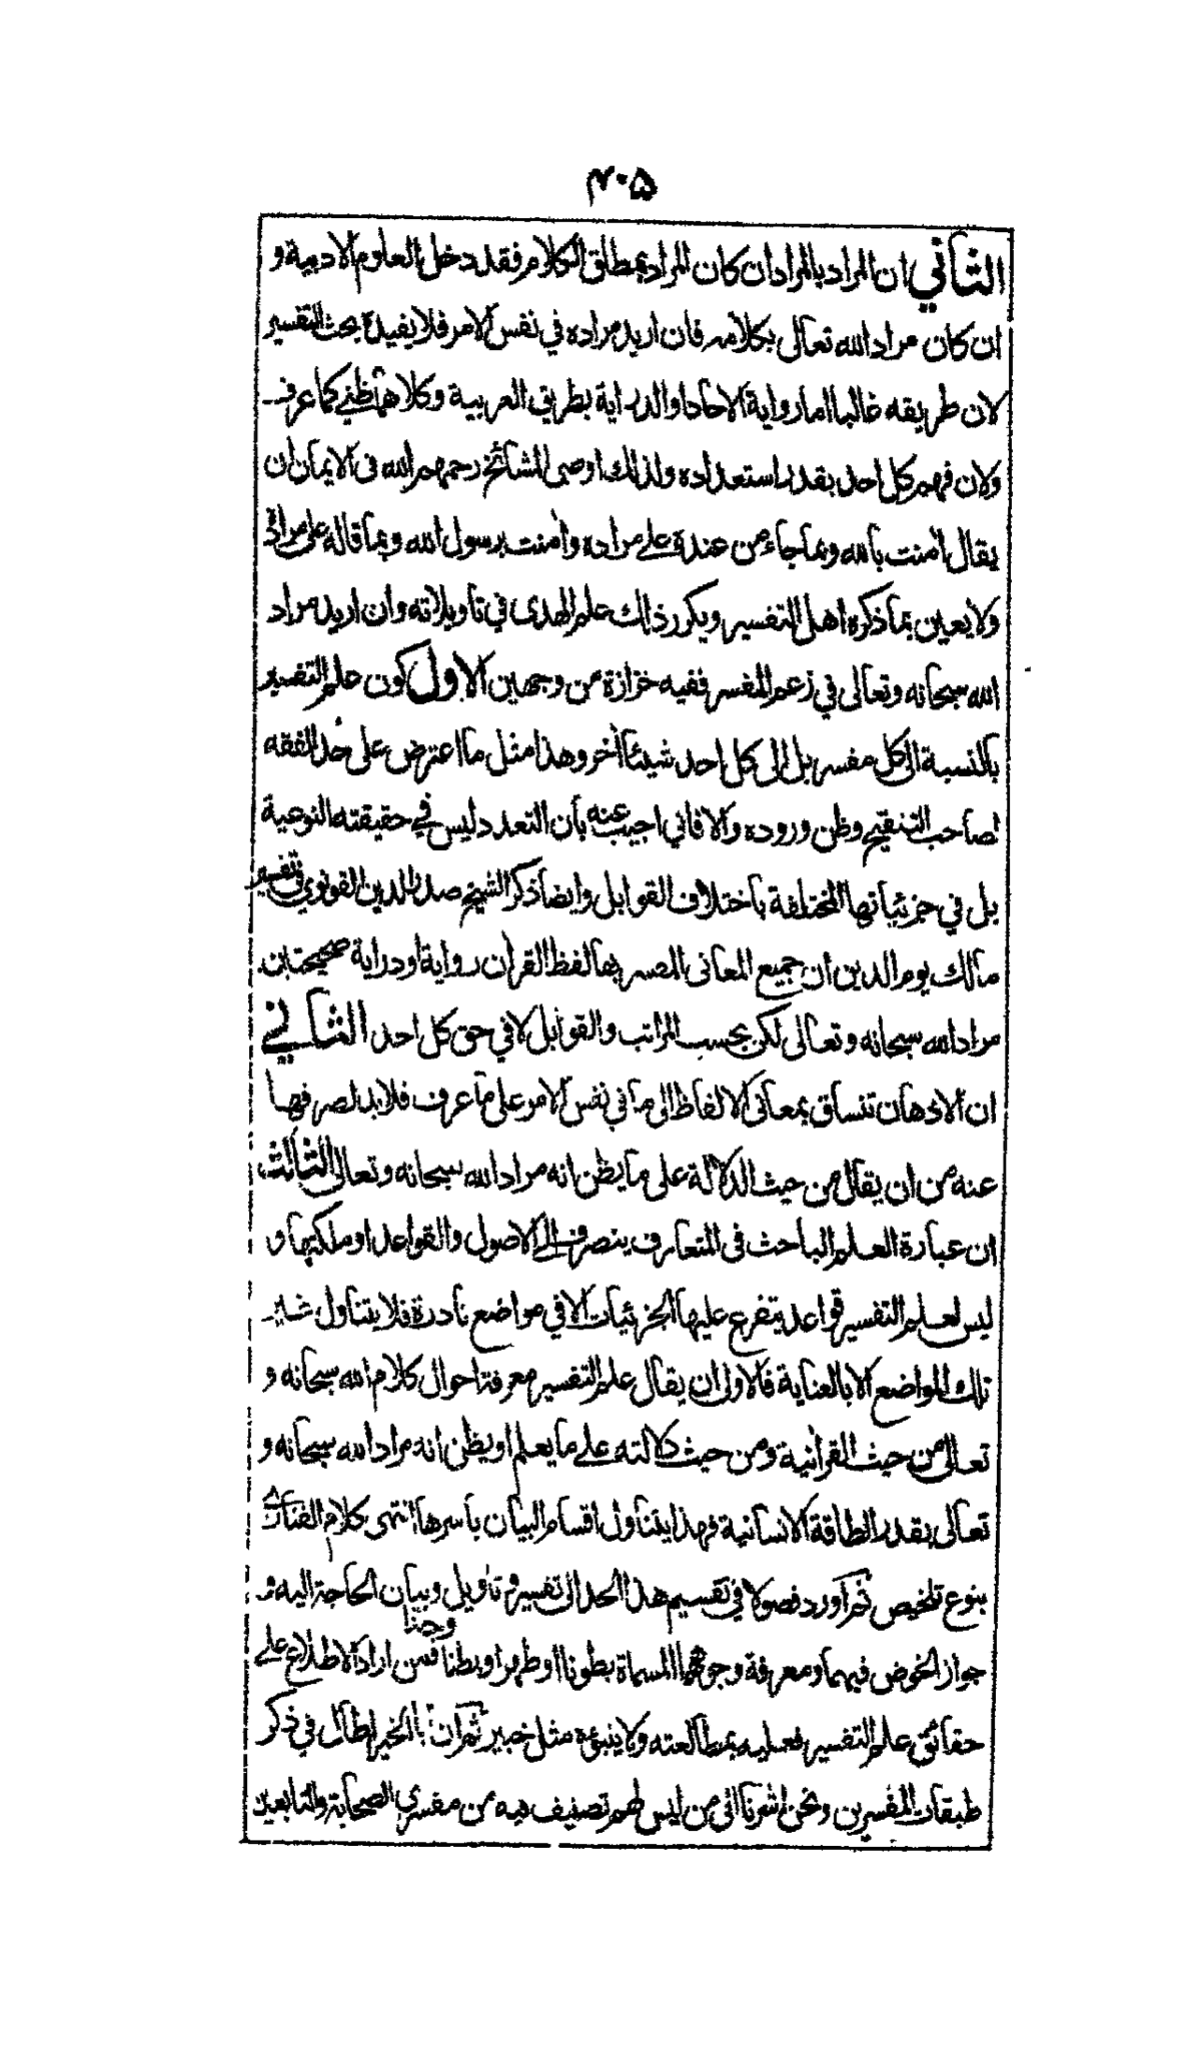 ۴۰۵
الثاني ان المراد بالمراد ان كان المراد بمطلق الكلام فقد دخل العلوم الادبية و
ان كان مراد الله تعالى بكلامه فان اريد مراده في نفس الامر فلا يفيده بحث التفسير
لان طريقه غالبا اما رواية الاحاد او الدراية بطريق العربية وكلاهما ظني كما عرف
ولان فهم كل احد بقدر استعداده ولذلك اوصى المشائخ رحمهم الله في الايمان ان
يقال اٰمنت بالله وبما جاء من عنده على مراده واٰمنت برسول الله وبما قاله على مراده
ولا يعين بما ذكره اهل التفسير ويكرر ذلك علم الهدى في تاويلاته وان اريد مراد
الله سبحانه وتعالى في زعم المفسر ففيه خزازة من وجهين الاول كون علم التفسير
بالنسبة الى كل مفسر بل الى كل احد شيئا اٰخر وهذا مثل ما اعترض على حد الفقه
لصاحب التنقيح وظن وروده والا فاني اجيب عنه بان التعدد ليس في حقيقته النوعية
بل في جزئياتها المختلفة باختلاف القوابل وايضا ذكر الشيخ صدر الدين القونوي في تفسير
مالك يوم الدين ان جميع المعاني المفسر بها لفظ القران رواية او دراية صحيحتين
مراد الله سبحانه وتعالى لكن بحسب المراتب والقوابل لا في حق كل احد الثاني
ان الاذهان تنساق بمعاني الالفاظ الى ما في نفس الامر على ما عرف فلا بد لصرفها
عنه من ان يقال من حيث الدلالة على ما يظن انه مراد الله سبحانه وتعالى الثالث
ان عبارة العلم الباحث في المتعارف ينصرف الى الاصول والقواعد او ملكتها و
ليس لعلم التفسير قواعد يتفرع عليها الجزئيات الا في مواضع نادرة فلا يتناول غير
تلك المواضع الا بالعناية فالاولى ان يقال علم التفسير معرفة احوال كلام الله سبحانه و
تعالى من حيث القراٰنية ومن حيث دلالته على ما يعلم او يظن انه مراد الله سبحانه و
تعالى بقدر الطاقة الانسانية فهذا يتناول اقسام البيان باسرها انتهى كلام الفناري
بنوع تلخيص ثم اورد فصولا في تقسيم هذا الحد الى تفسير وتاويل وبيان الحاجة اليه و
جواز الخوض فيهما ومعرفة وجوههما المسماة بطونا او ظهرا وبطنا فمن اراد الاطلاع على
حقائق علم التفسير فعليه بمطالعته ولا ينبئه مثل خبير ثم ان ابا الخير اطال في ذكر
طبقات المفسرين ونحن اشرنا الى من ليس لهم تصنيف فيه من مفسري الصحابة والتابعين